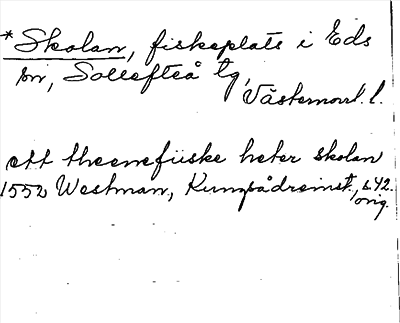 *Skolan, fiskeplats i Eds
sn, Sollefteå tg,
Västernorrl. l.
ett theenefiiske heter skolan
1552 Westman, s. 42.
orig.